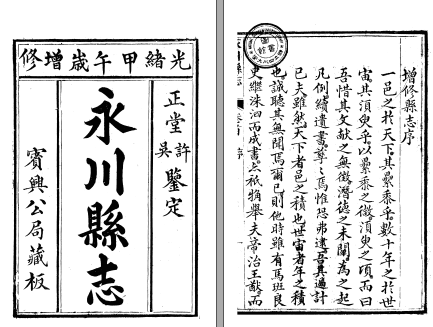 光緒甲午歲增修
正堂許吳鑒定
永川縣志
賓興公局藏板
增修縣志序
一邑之於天下其纍黍乎數十年之於世
宙其須臾乎以纍黍之微須臾之頃而曰
吾惜其文献之無徵潛德之未闡為之起
凡例續遺書孳孳焉惟恐弗逮吾真過計
已夫雖然天下者邑之積也世宙者年之積
也誠聽其無聞焉爾已則他時雖有馬班良
史繼洙泗而成書亦祇觕舉夫帝治王猷而